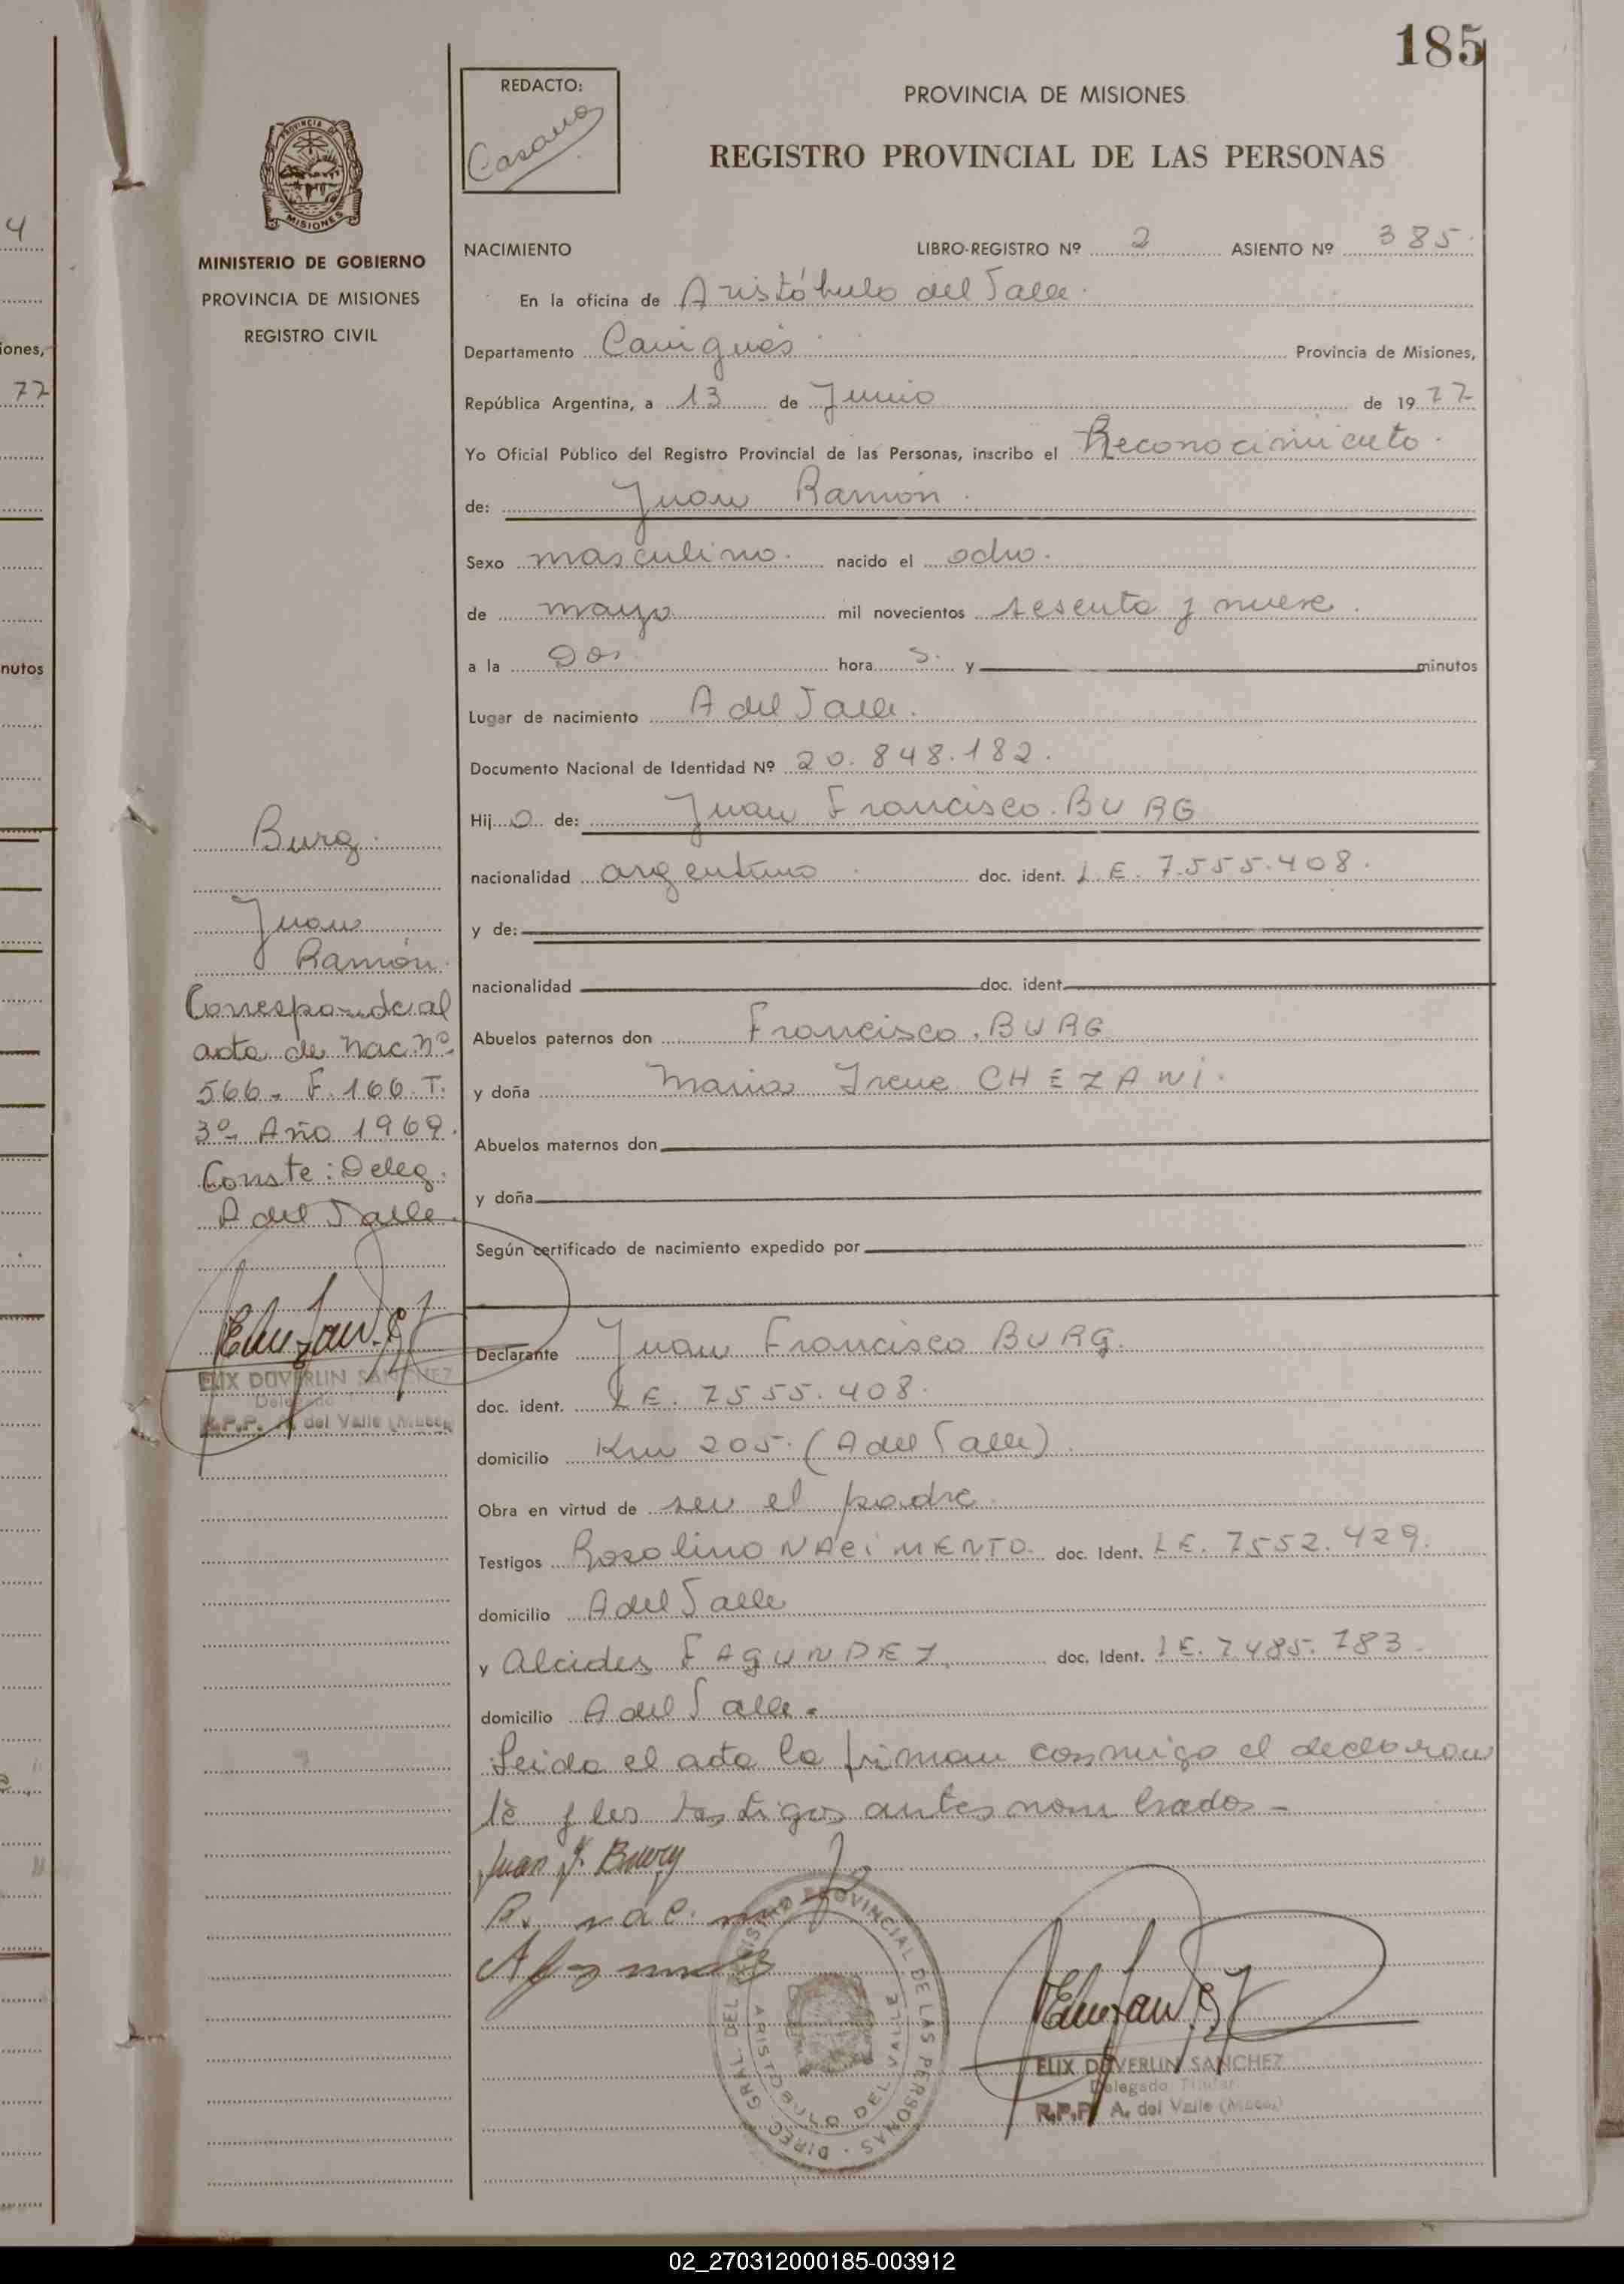 185
REDACTO:
Casano
PROVINCIA DE MISIONES
REGISTRO PROVINCIAL DE LAS PERSONAS
PROVINCIA DE
MISIONES
MINISTERIO DE GOBIERNO
PROVINCIA DE MISIONES
REGISTRO CIVIL
4
iones,
77
nutos
NACIMIENTO LIBRO-REGISTRO Nº 2 ASIENTO Nº 385.
En la oficina de Aristóbulo del Valle.
Departamento Cainguás Provincia de Misiones,
República Argentina, a 13 de Junio de 1977
Yo Oficial Público del Registro Provincial de las Personas, inscribo el Reconocimiento.
de: Juan Ramón.
Sexo masculino. nacido el ocho.
de mayo mil novecientos sesenta y nueve.
a la Dos hora s. y minutos
Lugar de nacimiento A del Valle.
Documento Nacional de Identidad Nº 20.848.182.
Hij o de: Juan Francisco. BURG
nacionalidad argentino. doc. ident. L.E. 7.555.408.
y de:
nacionalidad doc. ident.
Abuelos paternos don Francisco. BURG
y doña Maria Irene CHEZANI.
Abuelos maternos don
y doña
Según certificado de nacimiento expedido por
Declarante Juan Francisco BURG.
doc. ident. L.E. 7555.408.
domicilio Km 205. (A del Valle).
Obra en virtud de ser el padre.
Testigos Rosalino NACIMENTO. doc. Ident. L.E. 7552.429.
domicilio A del Valle
y Alcides FAGUNDEZ. doc. Ident. L.E. 7485.783.
domicilio A del Valle.
Leida el acta la firman conmigo el declaran
te y los testigos antes nombrados-
Juan F. Burg
R. nac.
ELIX DUVERLIN SANCHEZ
Delegado Titular
R.P.P. A. del Valle (Mnes.)
DIREC. GRAL. DEL REGISTRO PROVINCIAL DE LAS PERSONAS
ARISTOBULO DEL VALLE
Burg.
Juan
Ramón.
Corresponde al
acta de Nac. Nº
566- F. 166. T.
3º- Año 1969.
Conste: Deleg.
A del Valle
ELIX DUVERLIN SANCHEZ
Delegado
R.P.P. A. del Valle (Mnes.)
02_270312000185-003912